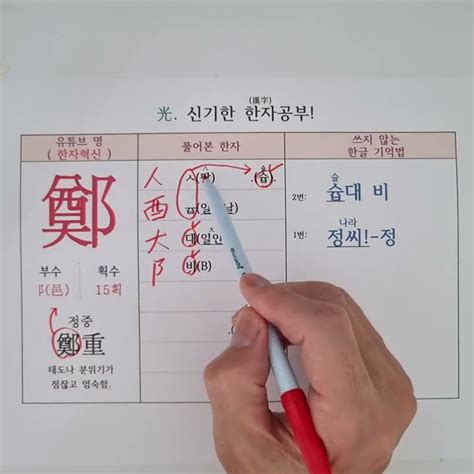 (漢字)
光. 신기한 한자공부!
유튜브 명
( 한자혁신 )
풀어본 한자
쓰지 않는
한글 기억법
鄭
부수 획수
阝(邑) 15획
정중
鄭重
태도나 분위기가
점잖고 엄숙함.
人 ㅅ(팔) .(슙).
酉
大 대(일인
阝 비(B)
슐
2번: 슙대 비
나라
1번: 정씨!-정